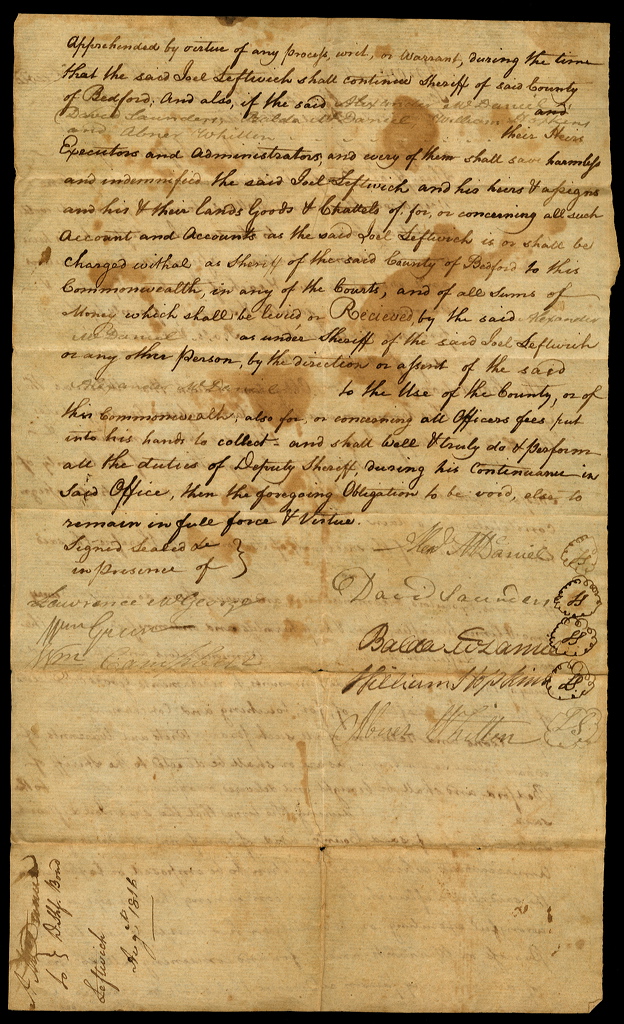 Apprehended by virtue of any Process, writ, or Warrant, during the time
that the said Joel Leftwich shall continue Sheriff of said County
of Bedford; And also, if the said Alexander McDaniel
David Saunders, Balda McDaniel William Hopkins and
and Abner Whitten their Heirs
Executors and Administrators, and every of them shall save harmless
and indemnified the said Joel Leftwich and his heirs & assigns
and his & their lands Goods & Chattels of, for, or concerning all such
Account and Accounts as the said Joel Leftwich is or shall be
Charged withal as Sheriff of the said County of Bedford to this
Commonwealth, in any of the Courts, and of all Sums of
Money which shall be levied or Recieved by the said Alexander
McDaniel as under Sheriff of the said Joel Leftwich
or any other person, by the direction or assent of the said
Alexander McDaniel to the Use of the County, or of
this Commonwealth, also for, or concerning all Officers fees put
into his hands to collect - and shall well & truly do & perform
all the duties of Deputy Sheriff, during his Continuance in
Said Office, then the foregoing Obligation to be void, else to
remain in full force & Virtue.
Signed Sealed &c
in presence of
Alexr McDaniel LS
Lawrence McGeorge
David Saunders LS
Wm
Balda McDaniel LS
Wm Campbell
William Hopkins LS
Abner Whitten LS
A. McDaniel
to } D. Shff. Bond
Leftwich
Augt 1812